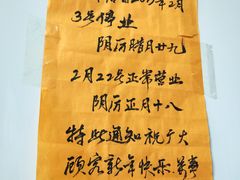 2019年2月
3号停业
阴历腊月廿九
2月22号正常营业
阴历正月十八
特此通知祝广大
顾客新年快乐.萬事